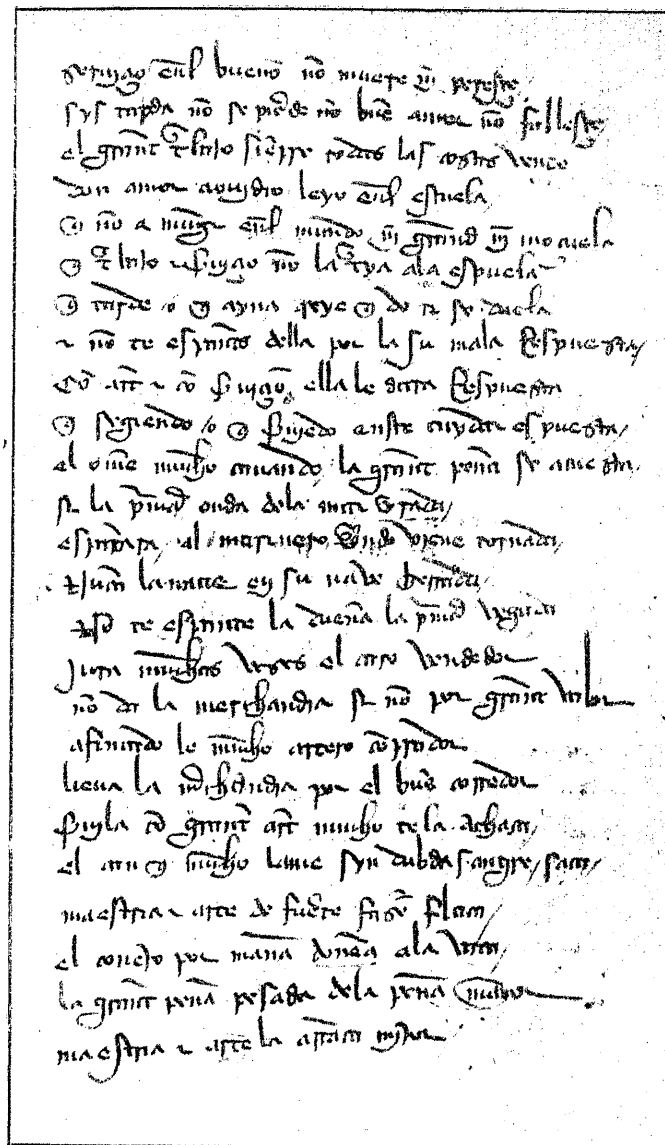 seruiçio enl bueno nõ muere nĩ pereçe
sys tarda nõ se pierde nõ buẽ amor nõ falleçe
el grant trabajo siẽpre todas las cosas vençe
don amor a ouidio leyo enl escuela
q̃ nõ a mug̃r enl mundo nĩ grand nĩ moçuela
q̃ trabajo e s̃uiçio nõ la traya ala espuela
q̃ tarde o q̃ ayna creye q̃ de ti se duela
e nõ te espantes della por la su mala Respuesta
Cõ art e cõ s̃uiçio ella le dara Respuesta
q̃ segiendo o q̃ s̃uiẽdo enste cuydar es puesta
el ome mucho cauando la grant peña se acuesta
si la prim̃a onda dela mar ayrada
espantara al marinero quãdo viene tornada
nuca la mare en su naue ferrada
nõ te espante la dueña la prim̃a vegada
jura muchas vezes el caro vendedor
nõ dar la merchandia si nõ por grant valor
afincando le mucho artero conprador
lieua la m̃chandia por el buẽ corredor
s̃uyla cõ grant art mucho te la achaca
el can q̃ mucho lame syn dubda sangre saca
maestria e arte de fuerte faze flaca
el conejo por maña doñea ala vaca
la grant peña pesada dela peña mayor
maestria e arte la arranca mejor